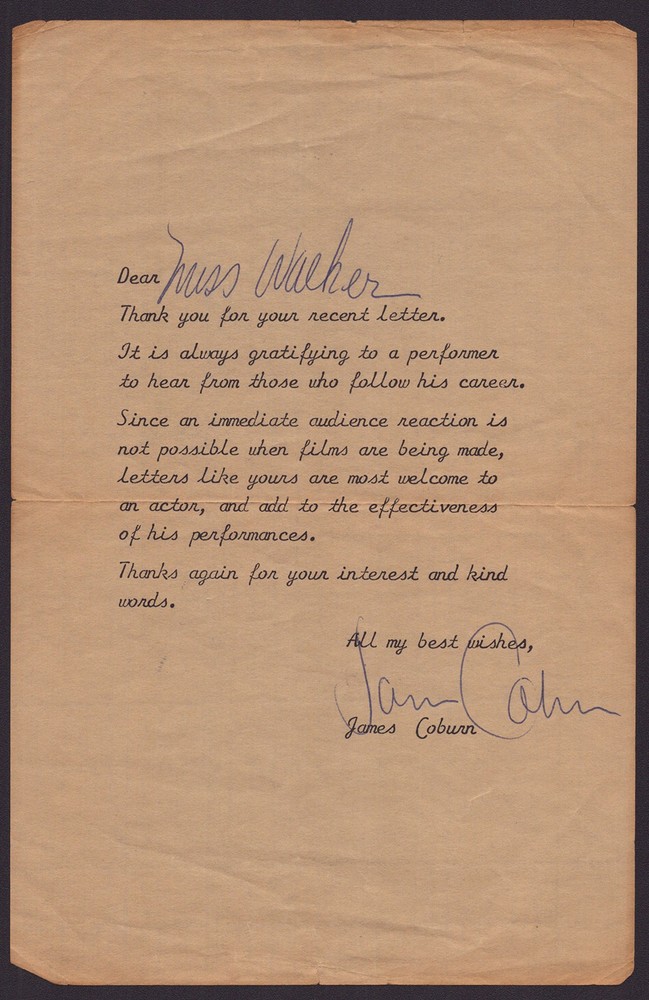 Dear Miss Walker
Thank you for your recent letter.
It is always gratifying to a performer
to hear from those who follow his career.
Since an immediate audience reaction is
not possible when films are being made,
letters like yours are most welcome to
an actor, and add to the effectiveness
of his performances.
Thanks again for your interest and kind
words.
All my best wishes,
James Coburn
James Coburn